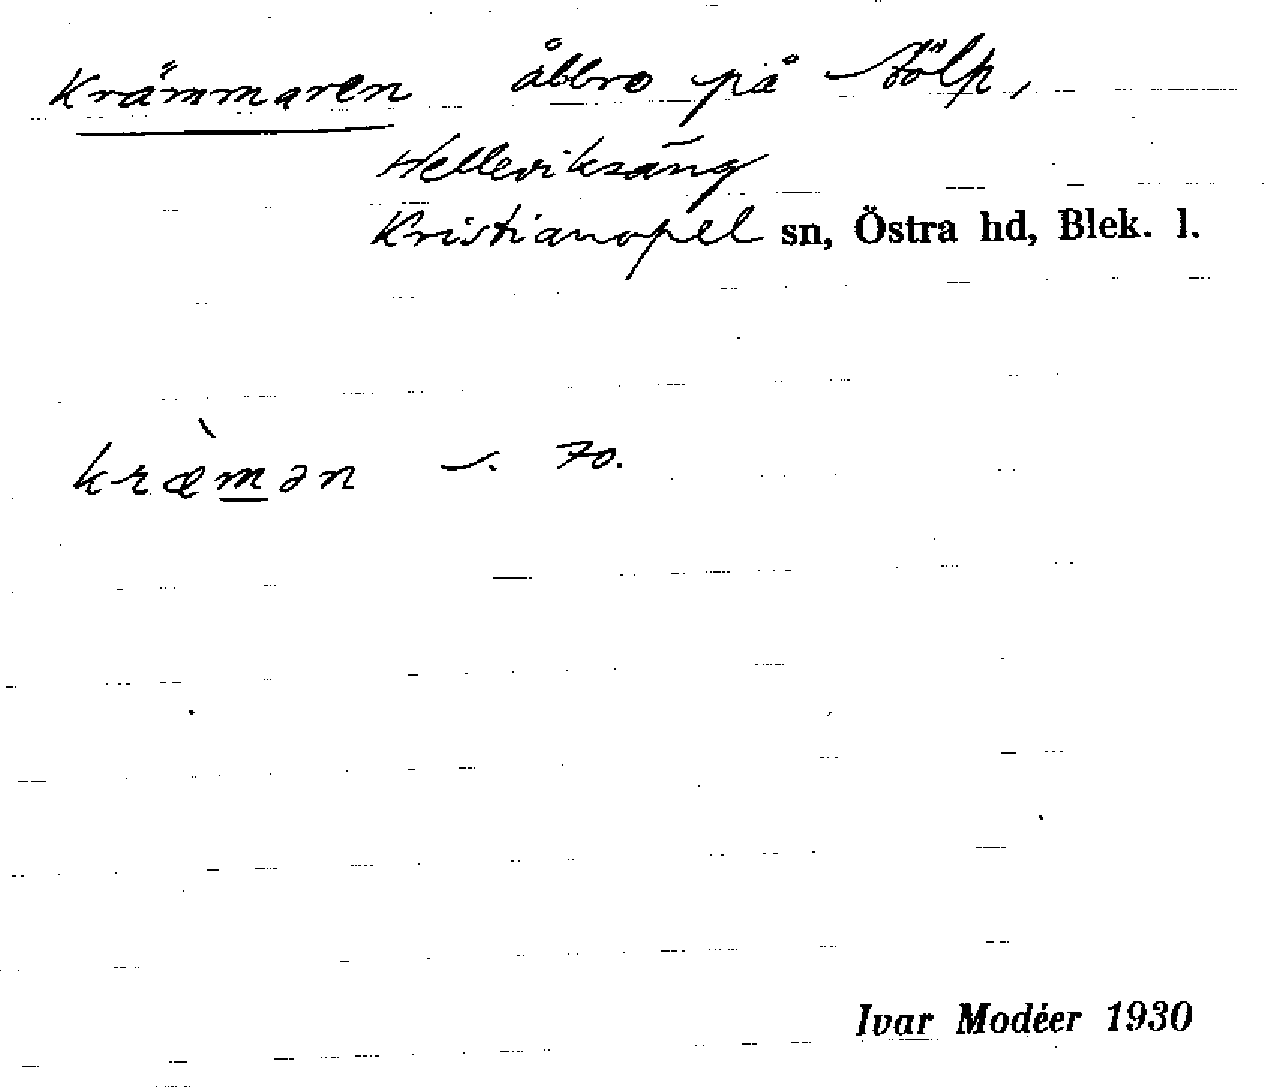 Krämmaren åbbro på Stölp,
Helleviksäng
Kristianopel sn, Östra hd, Blek. l.
kræ̀man 70.
Ivar Modéer 1930